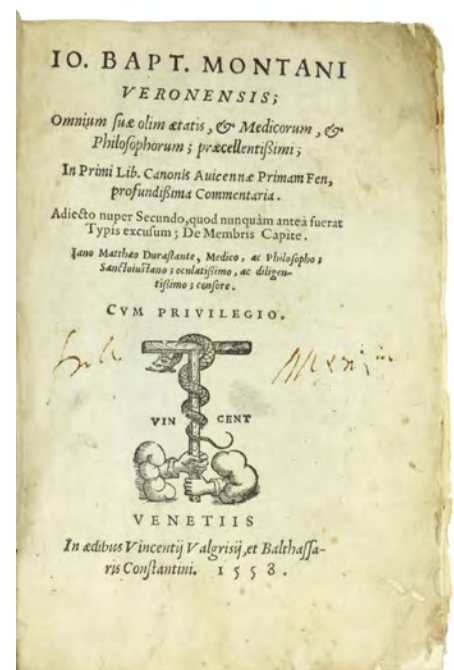 IO. BAPT. MONTANI
VERONENSIS;
Omnium suæ olim ætatis, & Medicorum, &
Philosophorum; præcellentißimi;
In Primi Lib. Canonis Auicennæ Primam Fen,
profundißima Commentaria.
Adiecto nuper Secundo, quod nunquàm anteà fuerat
Typis excusum; De Membris Capite.
Iano Matthæo Durastante, Medico, ac Philosopho;
Sanctoiustano; oculatißimo, ac diligen-
tißimo; censore.
CVM PRIVILEGIO.
VIN CENT
VENETIIS
In ædibus Vincentij Valgrisij, et Balthassa-
ris Constantini. 1558.